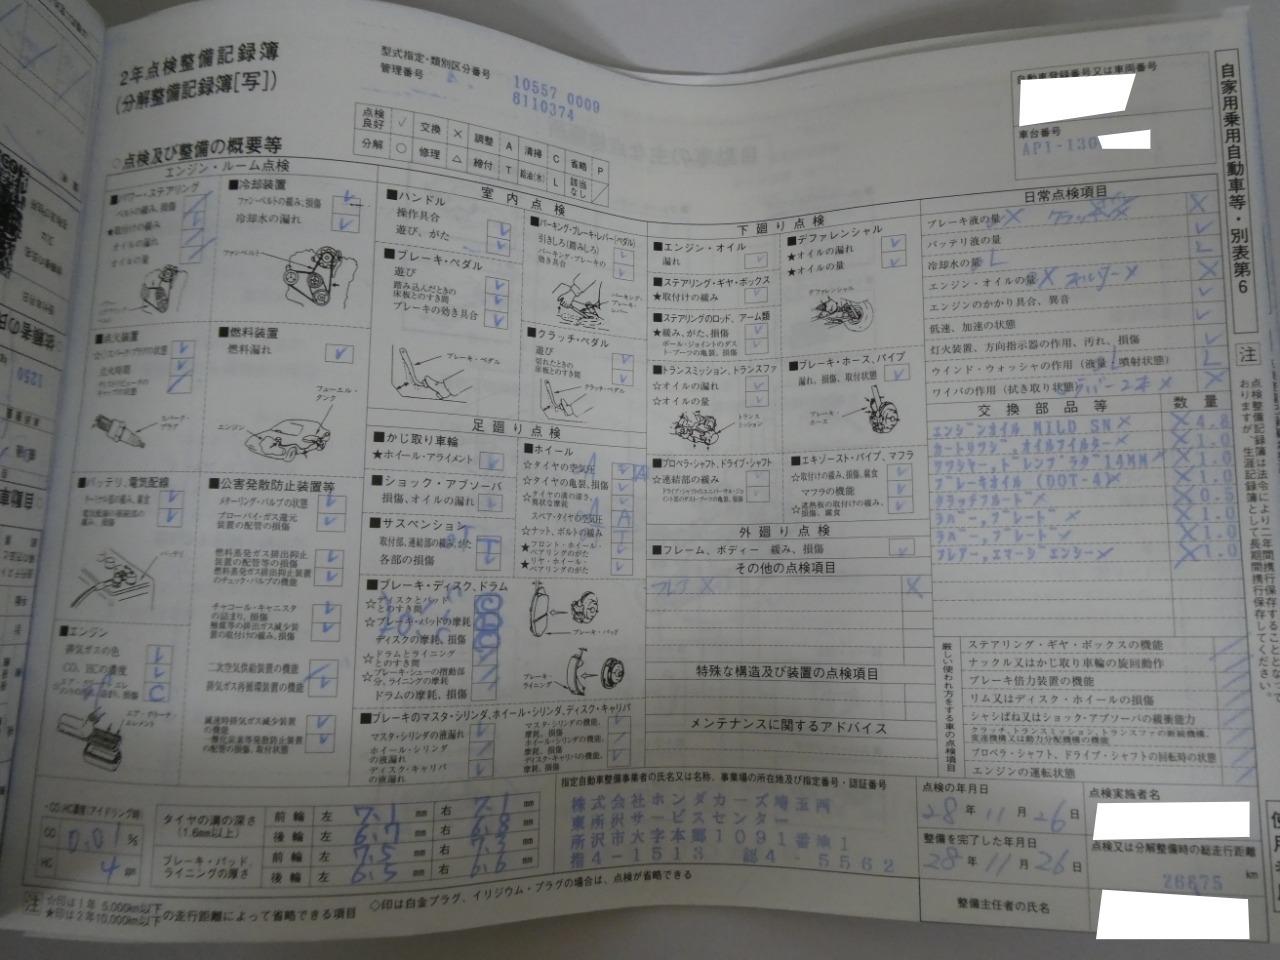 2年点検整備記録簿
(分解整備記録簿[写])
型式指定・類別区分番号
管理番号
10557 0009
6110374
自動車登録番号又は車両番号
車台番号
AP1-130
自家用乗用自動車等・別表第6
点検良好 ✓ 交換 × 調整 A 清掃 C 省略 P
分解 ○ 修理 △ 締付 T 給油(水) L 該当なし ／
◇点検及び整備の概要等
エンジン・ルーム点検
■パワー・ステアリング
ベルトの緩み、損傷
★取付けの緩み
オイルの漏れ
オイルの量
■冷却装置
ファン・ベルトの緩み、損傷
冷却水の漏れ
ファン・ベルト
■点火装置
点火時期
スパーク・プラグ
■燃料装置
燃料漏れ
フューエル・タンク
エンジン
■バッテリ、電気配線
バッテリ
■公害発散防止装置等
メターリング・バルブの状態
ブローバイ・ガス還元装置の配管の損傷
燃料蒸発ガス排出抑止装置の配管等の損傷
燃料蒸発ガス排出抑止装置のチェック・バルブの機能
チャコール・キャニスタの詰まり、損傷
触媒等の排出ガス減少装置の取付けの緩み、損傷
二次空気供給装置の機能
排気ガス再循環装置の機能
減速時排気ガス減少装置の機能
一酸化炭素等発散防止装置の配管の損傷、取付状態
■エンジン
排気ガスの色
CO、HCの濃度
C
エア・クリーナ・エレメント
室内点検
■ハンドル
操作具合
遊び、がた
■ブレーキ・ペダル
遊び
踏み込んだときの床板とのすき間
ブレーキの効き具合
ブレーキ・ペダル
■パーキング・ブレーキ・レバー(ペダル)
引きしろ(踏みしろ)
パーキング・ブレーキの効き具合
パーキング・ブレーキ・レバー
■クラッチ・ペダル
遊び
切れたときの床板とのすき間
クラッチ・ペダル
足廻り点検
■かじ取り車輪
★ホイール・アライメント
■ショック・アブソーバ
損傷、オイルの漏れ
■サスペンション
取付部、連結部の緩み、がた
各部の損傷
T
■ホイール
☆タイヤの空気圧
☆タイヤの亀裂、損傷
☆タイヤの溝の深さ、異状な摩耗
スペア・タイヤの空気圧
☆ナット、ボルトの緩み
★フロント・ホイール・ベアリングのがた
★リヤ・ホイール・ベアリングのがた
■ブレーキ・ディスク、ドラム
☆ディスクとパッドとのすき間
☆ブレーキ・パッドの摩耗
ディスクの摩耗、損傷
☆ドラムとライニングとのすき間
☆ブレーキ・シューの摺動部分、ライニングの摩耗
ドラムの摩耗、損傷
ブレーキ・パッド
ブレーキ・ライニング
■ブレーキのマスタ・シリンダ、ホイール・シリンダ、ディスク・キャリパ
マスタ・シリンダの液漏れ
ホイール・シリンダの液漏れ
ディスク・キャリパの液漏れ
マスタ・シリンダの機能、摩耗、損傷
ホイール・シリンダの機能、摩耗、損傷
ディスク・キャリパの機能、摩耗、損傷
下廻り点検
■エンジン・オイル
漏れ
■ステアリング・ギヤ・ボックス
★取付けの緩み
■ステアリングのロッド、アーム類
★緩み、がた、損傷
ボール・ジョイントのダスト・ブーツの亀裂、損傷
■トランスミッション、トランスファ
☆オイルの漏れ
☆オイルの量
トランスミッション
■プロペラ・シャフト、ドライブ・シャフト
☆連結部の緩み
ドライブ・シャフトのユニバーサル・ジョイント部のダスト・ブーツの亀裂、損傷
■デファレンシャル
★オイルの漏れ
★オイルの量
デファレンシャル
■ブレーキ・ホース、パイプ
漏れ、損傷、取付状態
ブレーキ・ホース
■エキゾースト・パイプ、マフラ
☆取付けの緩み、損傷、腐食
マフラの機能
☆遮熱板の取付けの緩み、損傷、腐食
外廻り点検
■フレーム、ボディー 緩み、損傷
その他の点検項目
特殊な構造及び装置の点検項目
メンテナンスに関するアドバイス
日常点検項目
ブレーキ液の量
バッテリ液の量
冷却水の量 L
エンジン・オイルの量
エンジンのかかり具合、異音
低速、加速の状態
灯火装置、方向指示器の作用、汚れ、損傷
ウインド・ウォッシャの作用(液量、噴射状態) L
ワイパの作用(拭き取り状態) ラバー2本 ×
交換部品等 数量
エンジンオイル MILD SN 4.8
カートリツジ,オイルフイルター 1.0
ワツシヤー,ドレンプラグ 14MM 1.0
ブレーキオイル (DOT-4) 1.0
クラツチフルード 0.5
ラバー,ブレード 1.0
ラバー,ブレード 1.0
フレアー,エマージエンシー 1.0
厳しい使われ方をする車の点検項目
ステアリング・ギヤ・ボックスの機能
ナックル又はかじ取り車輪の旋回動作
ブレーキ倍力装置の機能
リム又はディスク・ホイールの損傷
シャシばね又はショック・アブソーバの緩衝能力
クラッチ、トランスミッション、トランスファの断続機構、変速機構又は動力分配機構の機能
プロペラ・シャフト、ドライブ・シャフトの回転時の状態
エンジンの運転状態
注 点検整備記録簿は法令により二年間携行保存することになっておりますが、生涯記録として長期間携行保存してください。
・CO,HC濃度(アイドリング時)
CO 0.01 %
HC 4 ppm
タイヤの溝の深さ(1.6mm以上)
前輪 左 7.1 mm 右 7.1 mm
後輪 左 6.7 mm 右 6.8 mm
ブレーキ・パッド、ライニングの厚さ
前輪 左 7.5 mm 右 7.3 mm
後輪 左 6.5 mm 右 6.6 mm
指定自動車整備事業者の氏名又は名称、事業場の所在地及び指定番号・認証番号
株式会社ホンダカーズ埼玉西
東所沢サービスセンター
所沢市大字本郷1091番地1
指4-1513 認4-5562
点検の年月日
28年11月26日
整備を完了した年月日
28年11月26日
点検実施者名
点検又は分解整備時の総走行距離
26875 km
整備主任者の氏名
注 ☆印は1年 5,000km以下
★印は2年10,000km以下 の走行距離によって省略できる項目
◇印は白金プラグ、イリジウム・プラグの場合は、点検が省略できる